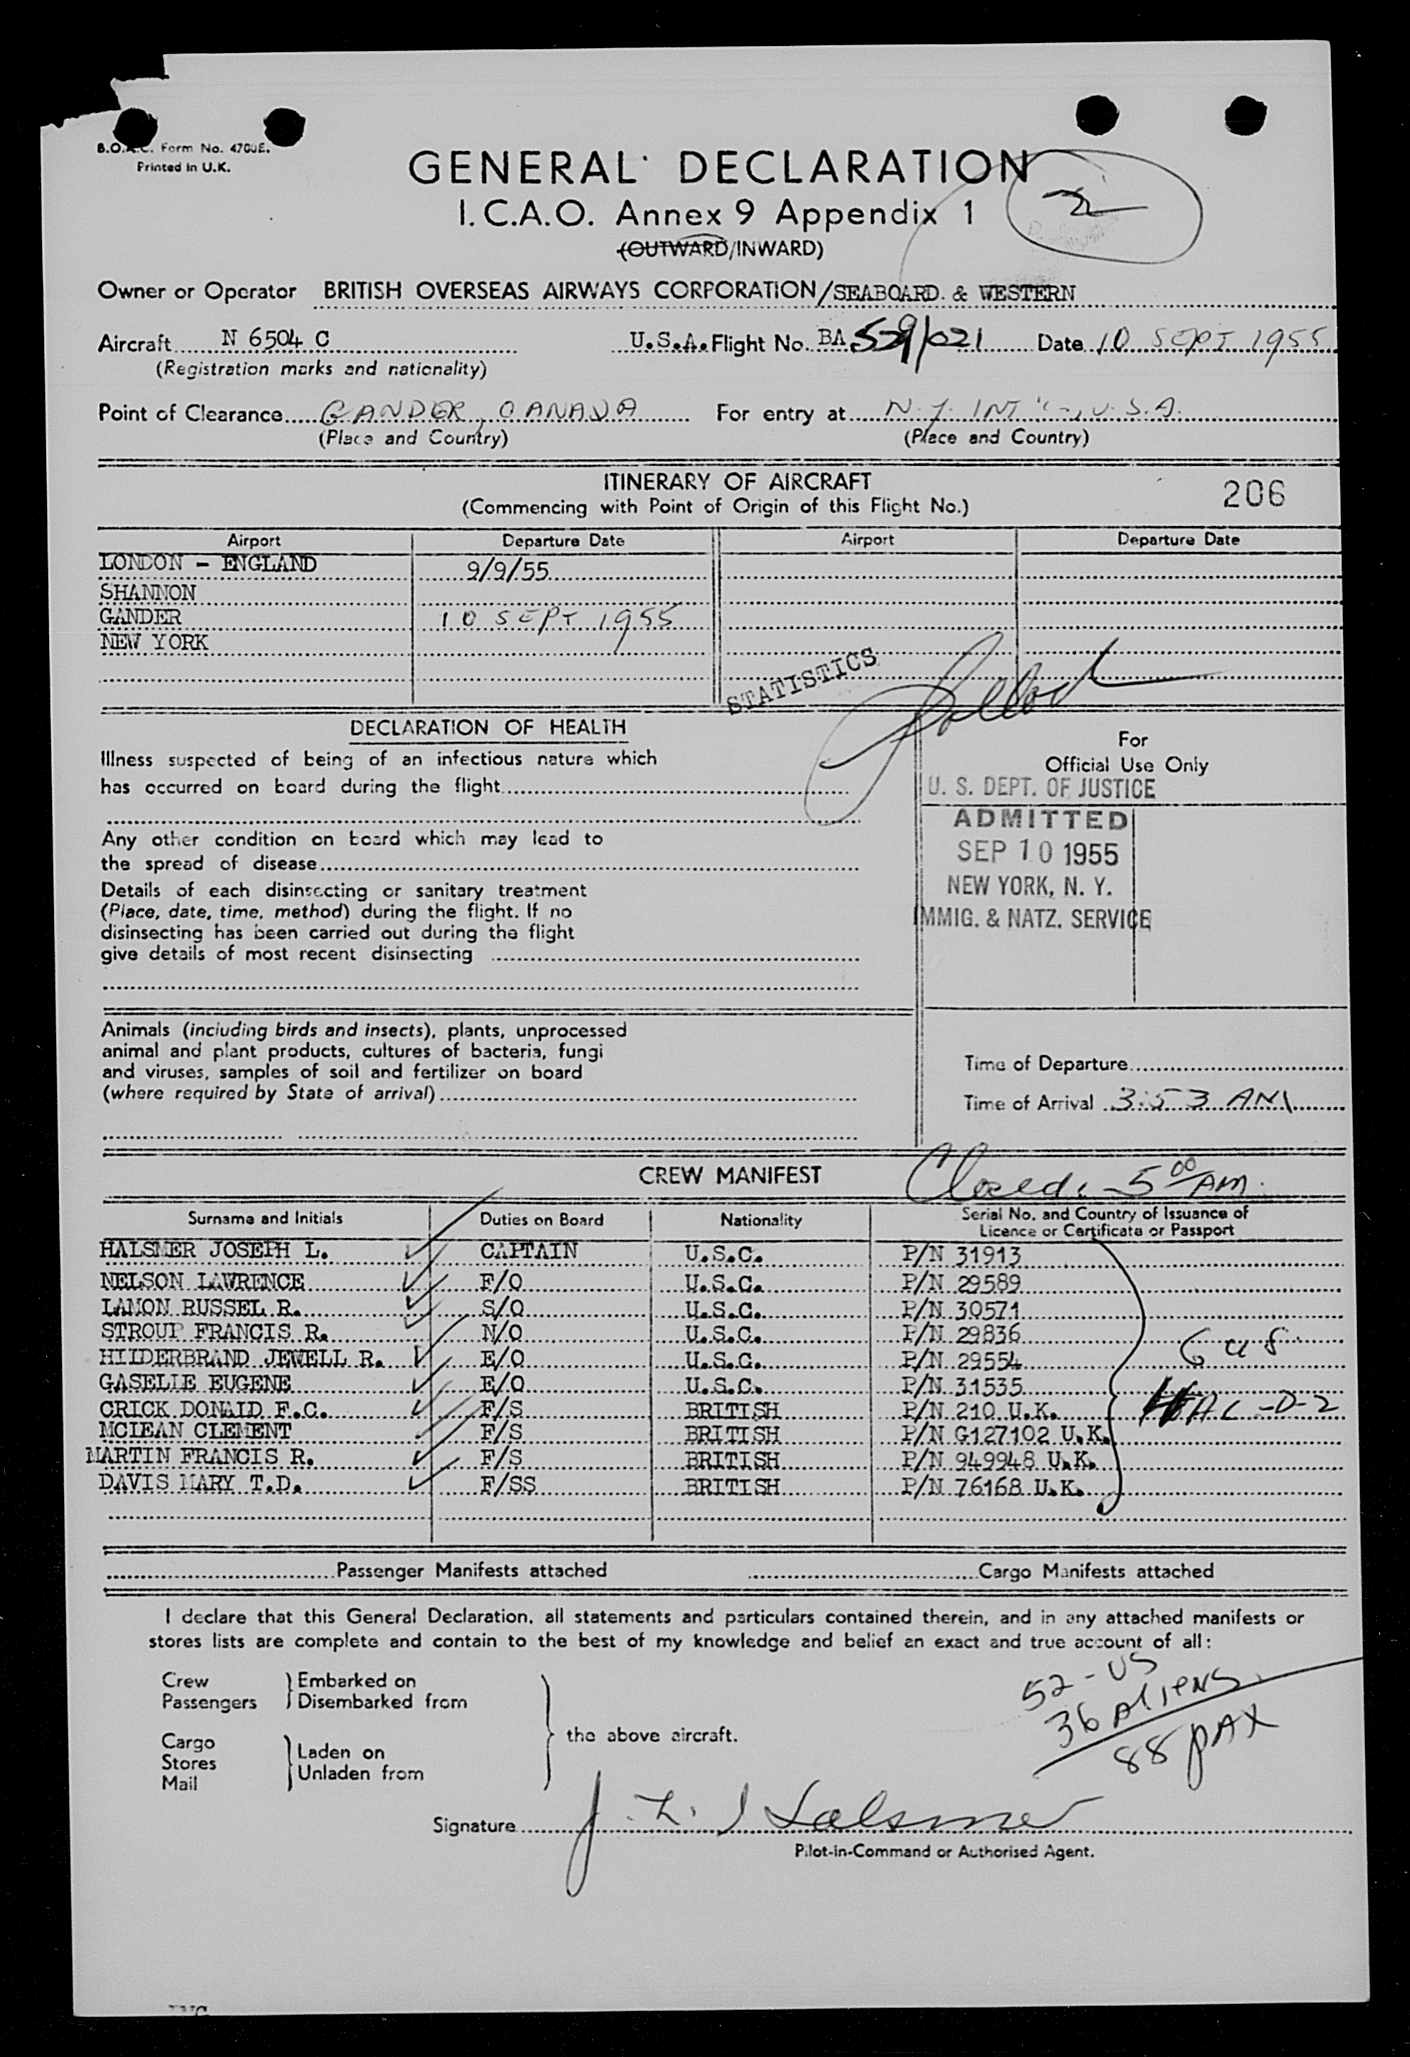 B.O.A.C. Form No. 4700E.
Printed in U.K.
GENERAL DECLARATION
I.C.A.O. Annex 9 Appendix 1
2
(OUTWARD/INWARD)
Owner or Operator BRITISH OVERSEAS AIRWAYS CORPORATION/SEABOARD & WESTERN
Aircraft N 6504 C U.S.A. Flight No. BA 529/021 Date 10 SEPT 1955
(Registration marks and nationality)
Point of Clearance GANDER, CANADA For entry at N.Y. INT'L, U.S.A.
(Place and Country) (Place and Country)
ITINERARY OF AIRCRAFT
(Commencing with Point of Origin of this Flight No.)
206
Airport Departure Date Airport Departure Date
LONDON - ENGLAND 9/9/55
SHANNON
GANDER 10 SEPT 1955
NEW YORK
STATISTICS
DECLARATION OF HEALTH
Illness suspected of being of an infectious nature which
has occurred on board during the flight
Any other condition on board which may lead to
the spread of disease
Details of each disinsecting or sanitary treatment
(Place, date, time, method) during the flight. If no
disinsecting has been carried out during the flight
give details of most recent disinsecting
For
Official Use Only
U. S. DEPT. OF JUSTICE
ADMITTED
SEP 10 1955
NEW YORK, N. Y.
IMMIG. & NATZ. SERVICE
Animals (including birds and insects), plants, unprocessed
animal and plant products, cultures of bacteria, fungi
and viruses, samples of soil and fertilizer on board
(where required by State of arrival)
Time of Departure
Time of Arrival 3:53 AM
CREW MANIFEST Closed. 5 00 AM.
Surname and Initials Duties on Board Nationality Serial No. and Country of Issuance of
Licence or Certificate or Passport
HALSMER JOSEPH L. CAPTAIN U.S.C. P/N 31913
NELSON LAWRENCE F/O U.S.C. P/N 29589
LAMON RUSSEL R. S/O U.S.C. P/N 30571
STROUP FRANCIS R. N/O U.S.C. P/N 29836
HILDERBRAND JEWELL R. E/O U.S.C. P/N 29554
6 US
GASELLE EUGENE E/O U.S.C. P/N 31535
CRICK DONALD F.C. F/S BRITISH P/N 210 U.K.
4 AL-D-2
MCLEAN CLEMENT F/S BRITISH P/N G127102 U.K.
MARTIN FRANCIS R. F/S BRITISH P/N 949948 U.K.
DAVIS MARY T.D. F/SS BRITISH P/N 76168 U.K.
Passenger Manifests attached Cargo Manifests attached
I declare that this General Declaration, all statements and particulars contained therein, and in any attached manifests or
stores lists are complete and contain to the best of my knowledge and belief an exact and true account of all:
Crew Embarked on
Passengers Disembarked from
Cargo
Stores Laden on
Mail Unladen from
the above aircraft.
52 - US
36 Aliens
88 PAX
Signature J. L. Halsmer
Pilot-in-Command or Authorised Agent.